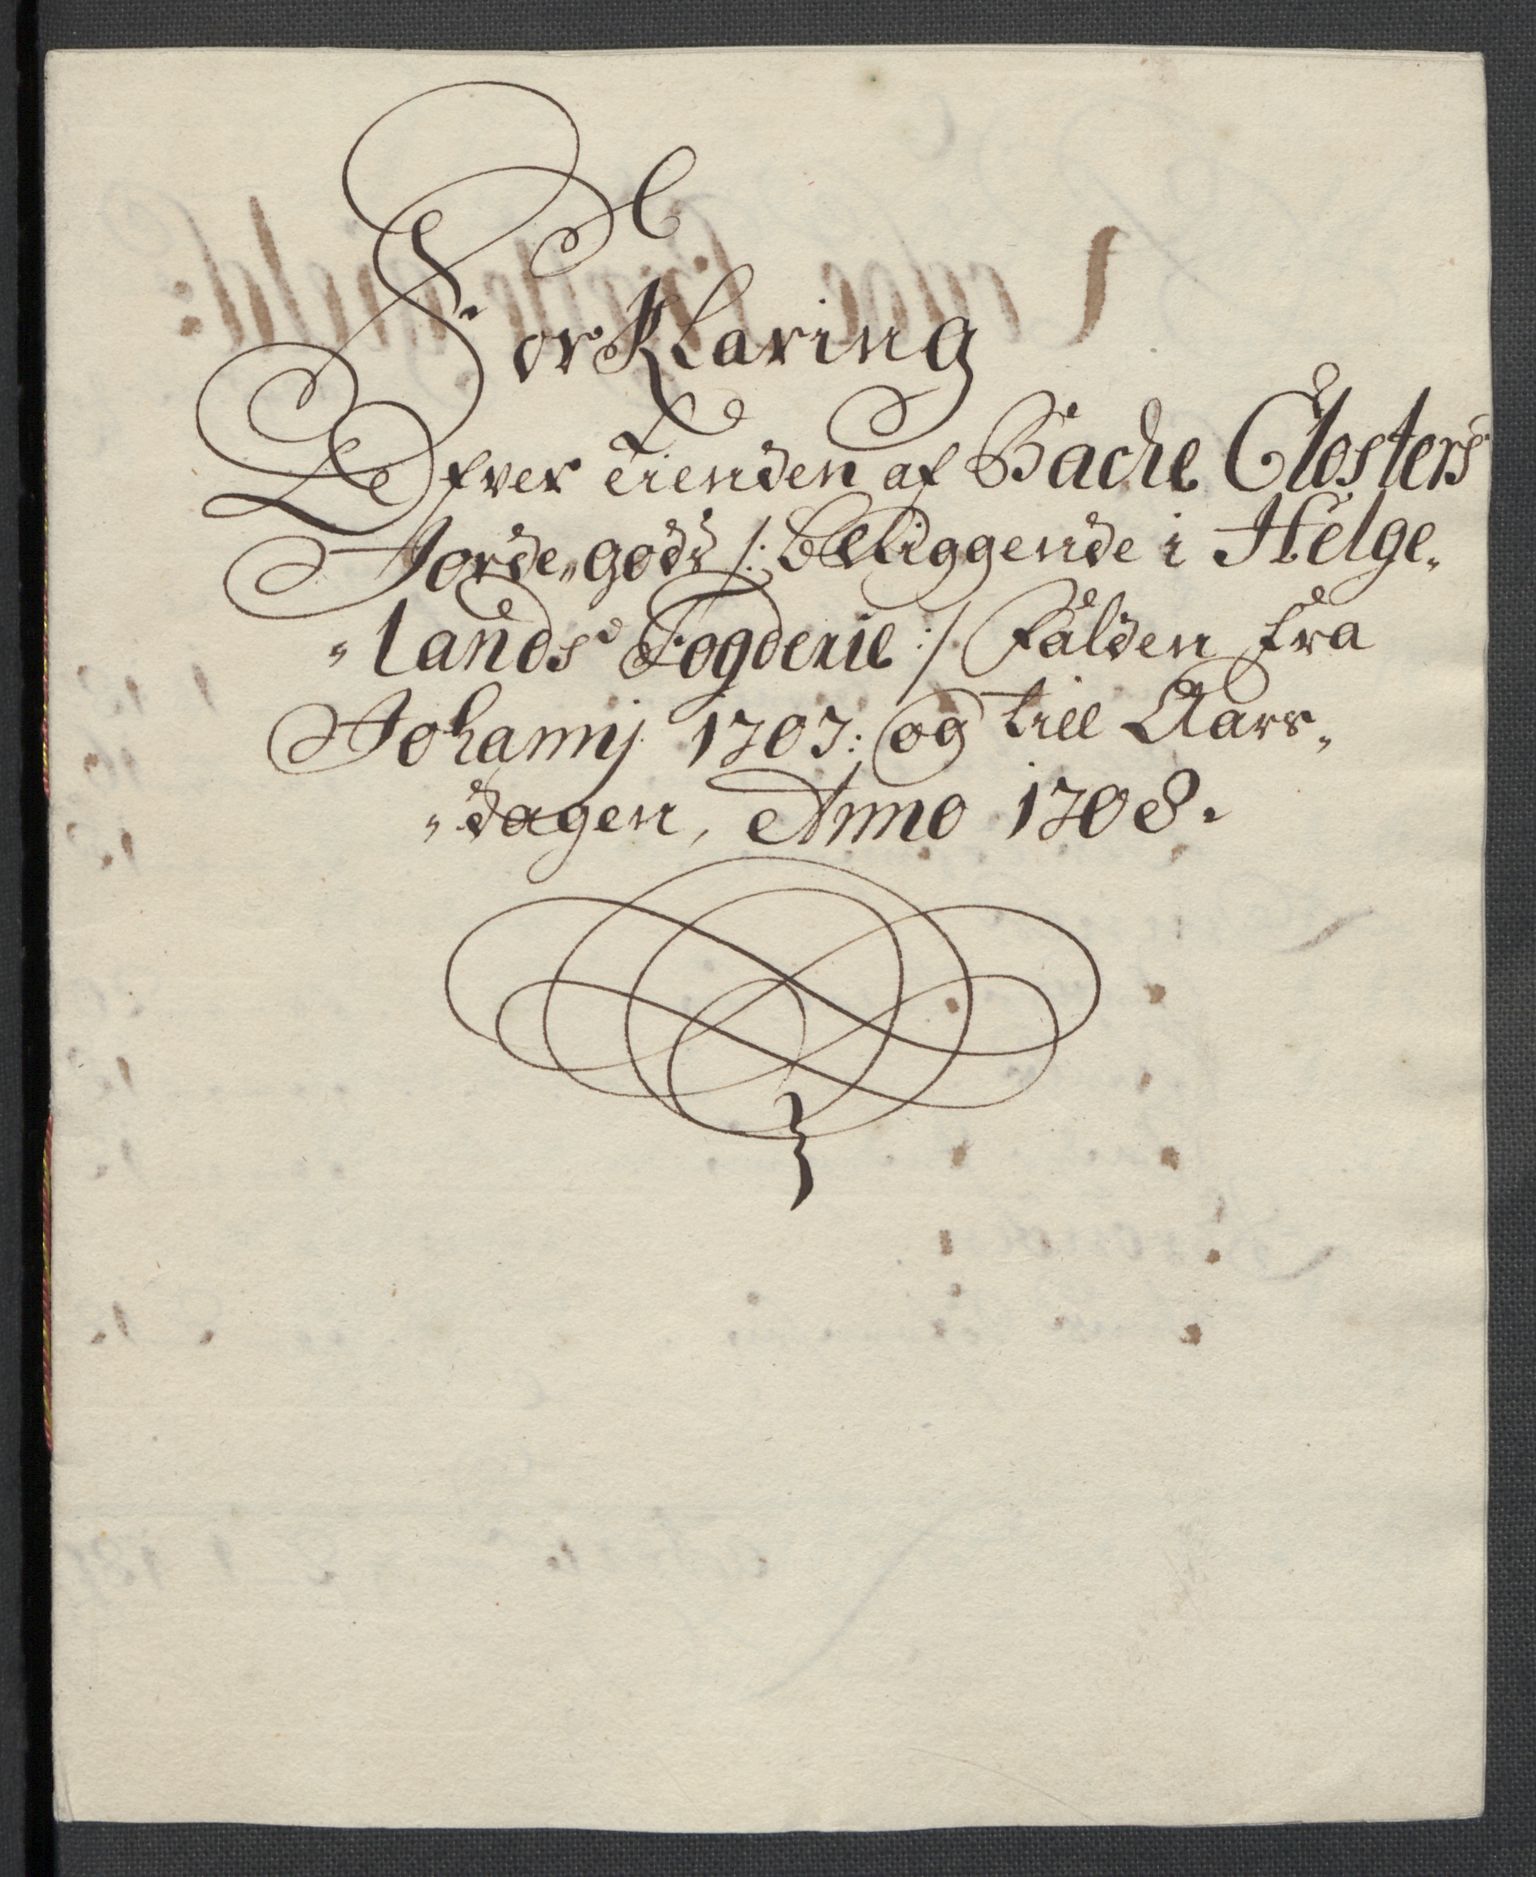 ForKlaring
Ofver Tienden af Bache Closters
Jorde„godz /: beliggende i Helge„
„lands Fogderie :/ Falden fra
Johannj 1707: og till Aars„
„dagen, Anno 1708.